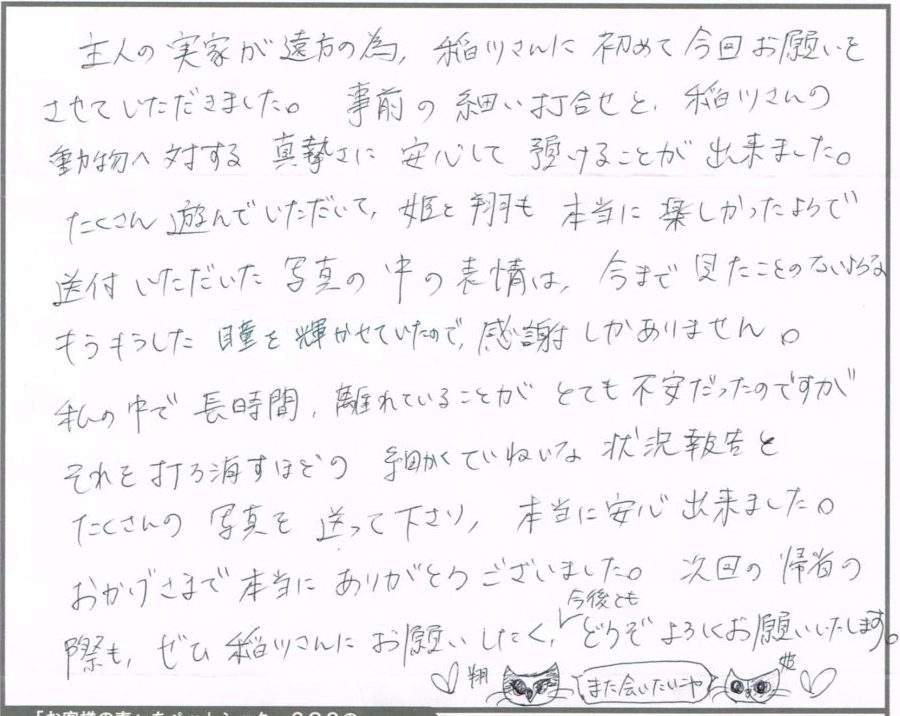 主人の実家が遠方の為、稲川さんに初めて今回お願いを
させていただきました。事前の細い打合せと、稲川さんの
動物へ対する真摯さに安心して預けることが出来ました。
たくさん遊んでいただいて、姫と翔も本当に楽しかったようで
送付いただいた写真の中の表情は、今まで見たことのないような
キラキラした瞳を輝かせていたので、感謝しかありません。
私の中で長時間、離れていることがとても不安だったのですが
それを打ち消すほどの細かくていねいな状況報告と
たくさんの写真を送って下さり、本当に安心出来ました。
おかげさまで本当にありがとうございました。次回の帰省の
際も、ぜひ稲川さんにお願いしたく、今後ともどうぞよろしくお願いいたします。
翔 また会いたいニャ 姫